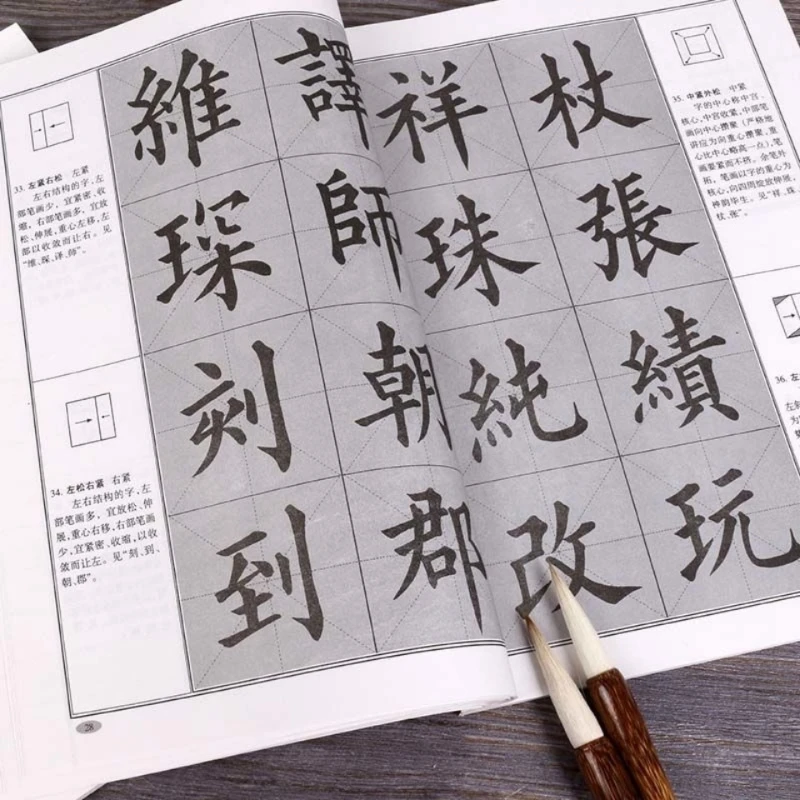 33. 左紧右松 左紧
左右结构的字,左
部笔画少,宜紧密、收
缩,右部笔画多,宜放
松、伸展,重心左移,左
部以收敛而让右。见
“维、琛、译、师”。
34. 左松右紧 右紧
左右结构的字,左
部笔画多,宜放松、伸
展,重心右移,右部笔画
少,宜紧密、收缩,以收
敛而让左。见“刻、到、
朝、郡”。
維 譯
琛 師
刻 朝
到 郡
28
祥 杖
珠 張
純 績
改 玩
35. 中紧外松 中紧
字的中心称中宫、
核心,中宫收紧,中部笔
画向中心攒聚(严格地
讲应为向重心攒聚,重
心比中心略高一点),笔
画要紧而不挤。余笔外
拓,笔画以字的重心为
核心,向四周绽放伸展,
神韵毕生。见“祥、珠、
杖、张”。
36. 左